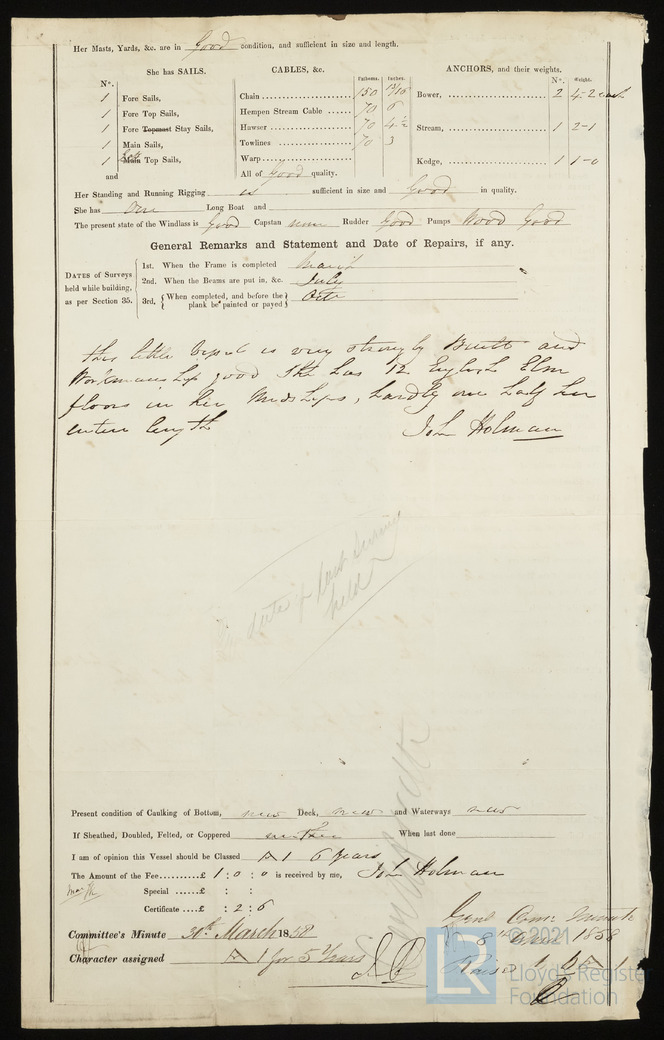 Her Masts, Yards, &c. are in Good condition, and sufficient in size and length.
She has SAILS.
CABLES, &c.
ANCHORS, and their weights.
N°.
Fathoms.
Inches.
N°.
Weight.
1 Fore Sails,
Chain 150 11/16
Bower, 2 4-2 each
1 Fore Top Sails,
Hempen Stream Cable 70 6
1 Fore Topmast Stay Sails,
Hawser 70 4½
Stream, 1 2-1
1 Main Sails,
Towlines 70 3
1 Main Top Sails,
Warp
Kedge, 1 1-0
and
All of Good quality.
Her Standing and Running Rigging is sufficient in size and Good in quality.
She has One Long Boat and
The present state of the Windlass is Good Capstan none Rudder Good Pumps Wood Good
General Remarks and Statement and Date of Repairs, if any.
DATES of Surveys
held while building,
as per Section 35.
1st. When the Frame is completed March
2nd. When the Beams are put in, &c. July
3rd. When completed, and before the
plank be painted or payed Octr
This little vessel is very strongly Built and
Workmanship good She has 12 English Elm
floors in her Midships, hardly one half her
entire length John Holman
No date of last survey
held
Present condition of Caulking of Bottom, new Deck, new and Waterways new
If Sheathed, Doubled, Felted, or Coppered neither When last done
I am of opinion this Vessel should be Classed A 1 6 years
The Amount of the Fee £ 1 : 0 : 0 is received by me, John Holman
Special £ : :
Certificate : 2 : 6
Committee's Minute 30th March 1858
Character assigned A 1 for 5 Years
Genl Comee Minute
8th April 1858
Raised 1 6 A 1
© 2021
LR
Lloyd's Register
Foundation